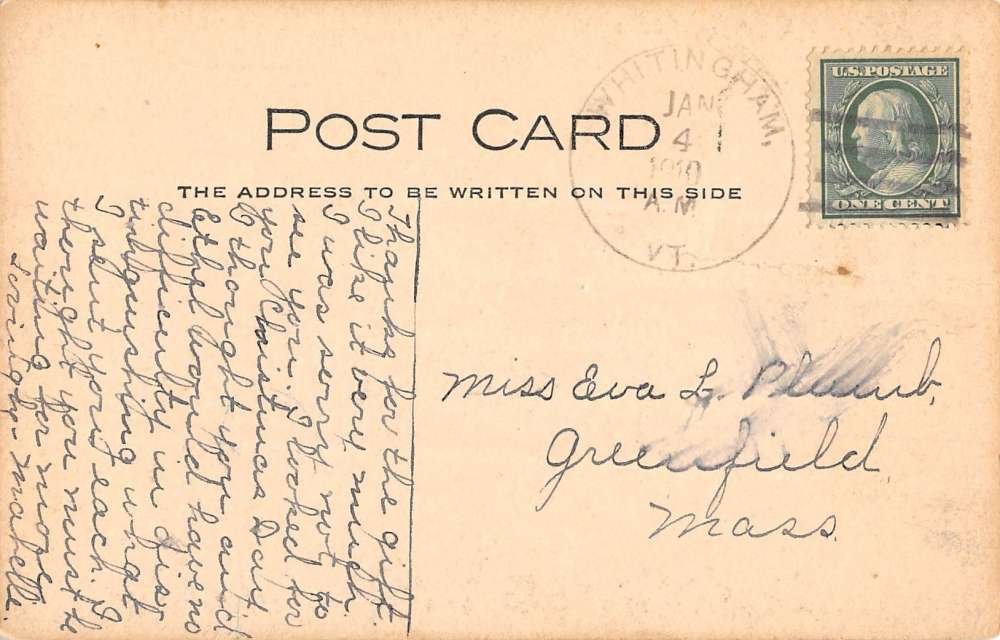 POST CARD
THE ADDRESS TO BE WRITTEN ON THIS SIDE
WHITINGHAM,
JAN
4
1910
A.M
VT.
U.S. POSTAGE
ONE CENT
Miss Eva L. Plumb,
Greenfield
Mass.
Thanks for the gift.
I like it very much.
I was sorry not to
see you. I looked for
you Christmas Day
I thought you and
Ethel would have no
difficulty in dis
tinguishing what
I sent you each. I
thought you must be
waiting for more
Lovingly - Mabelle